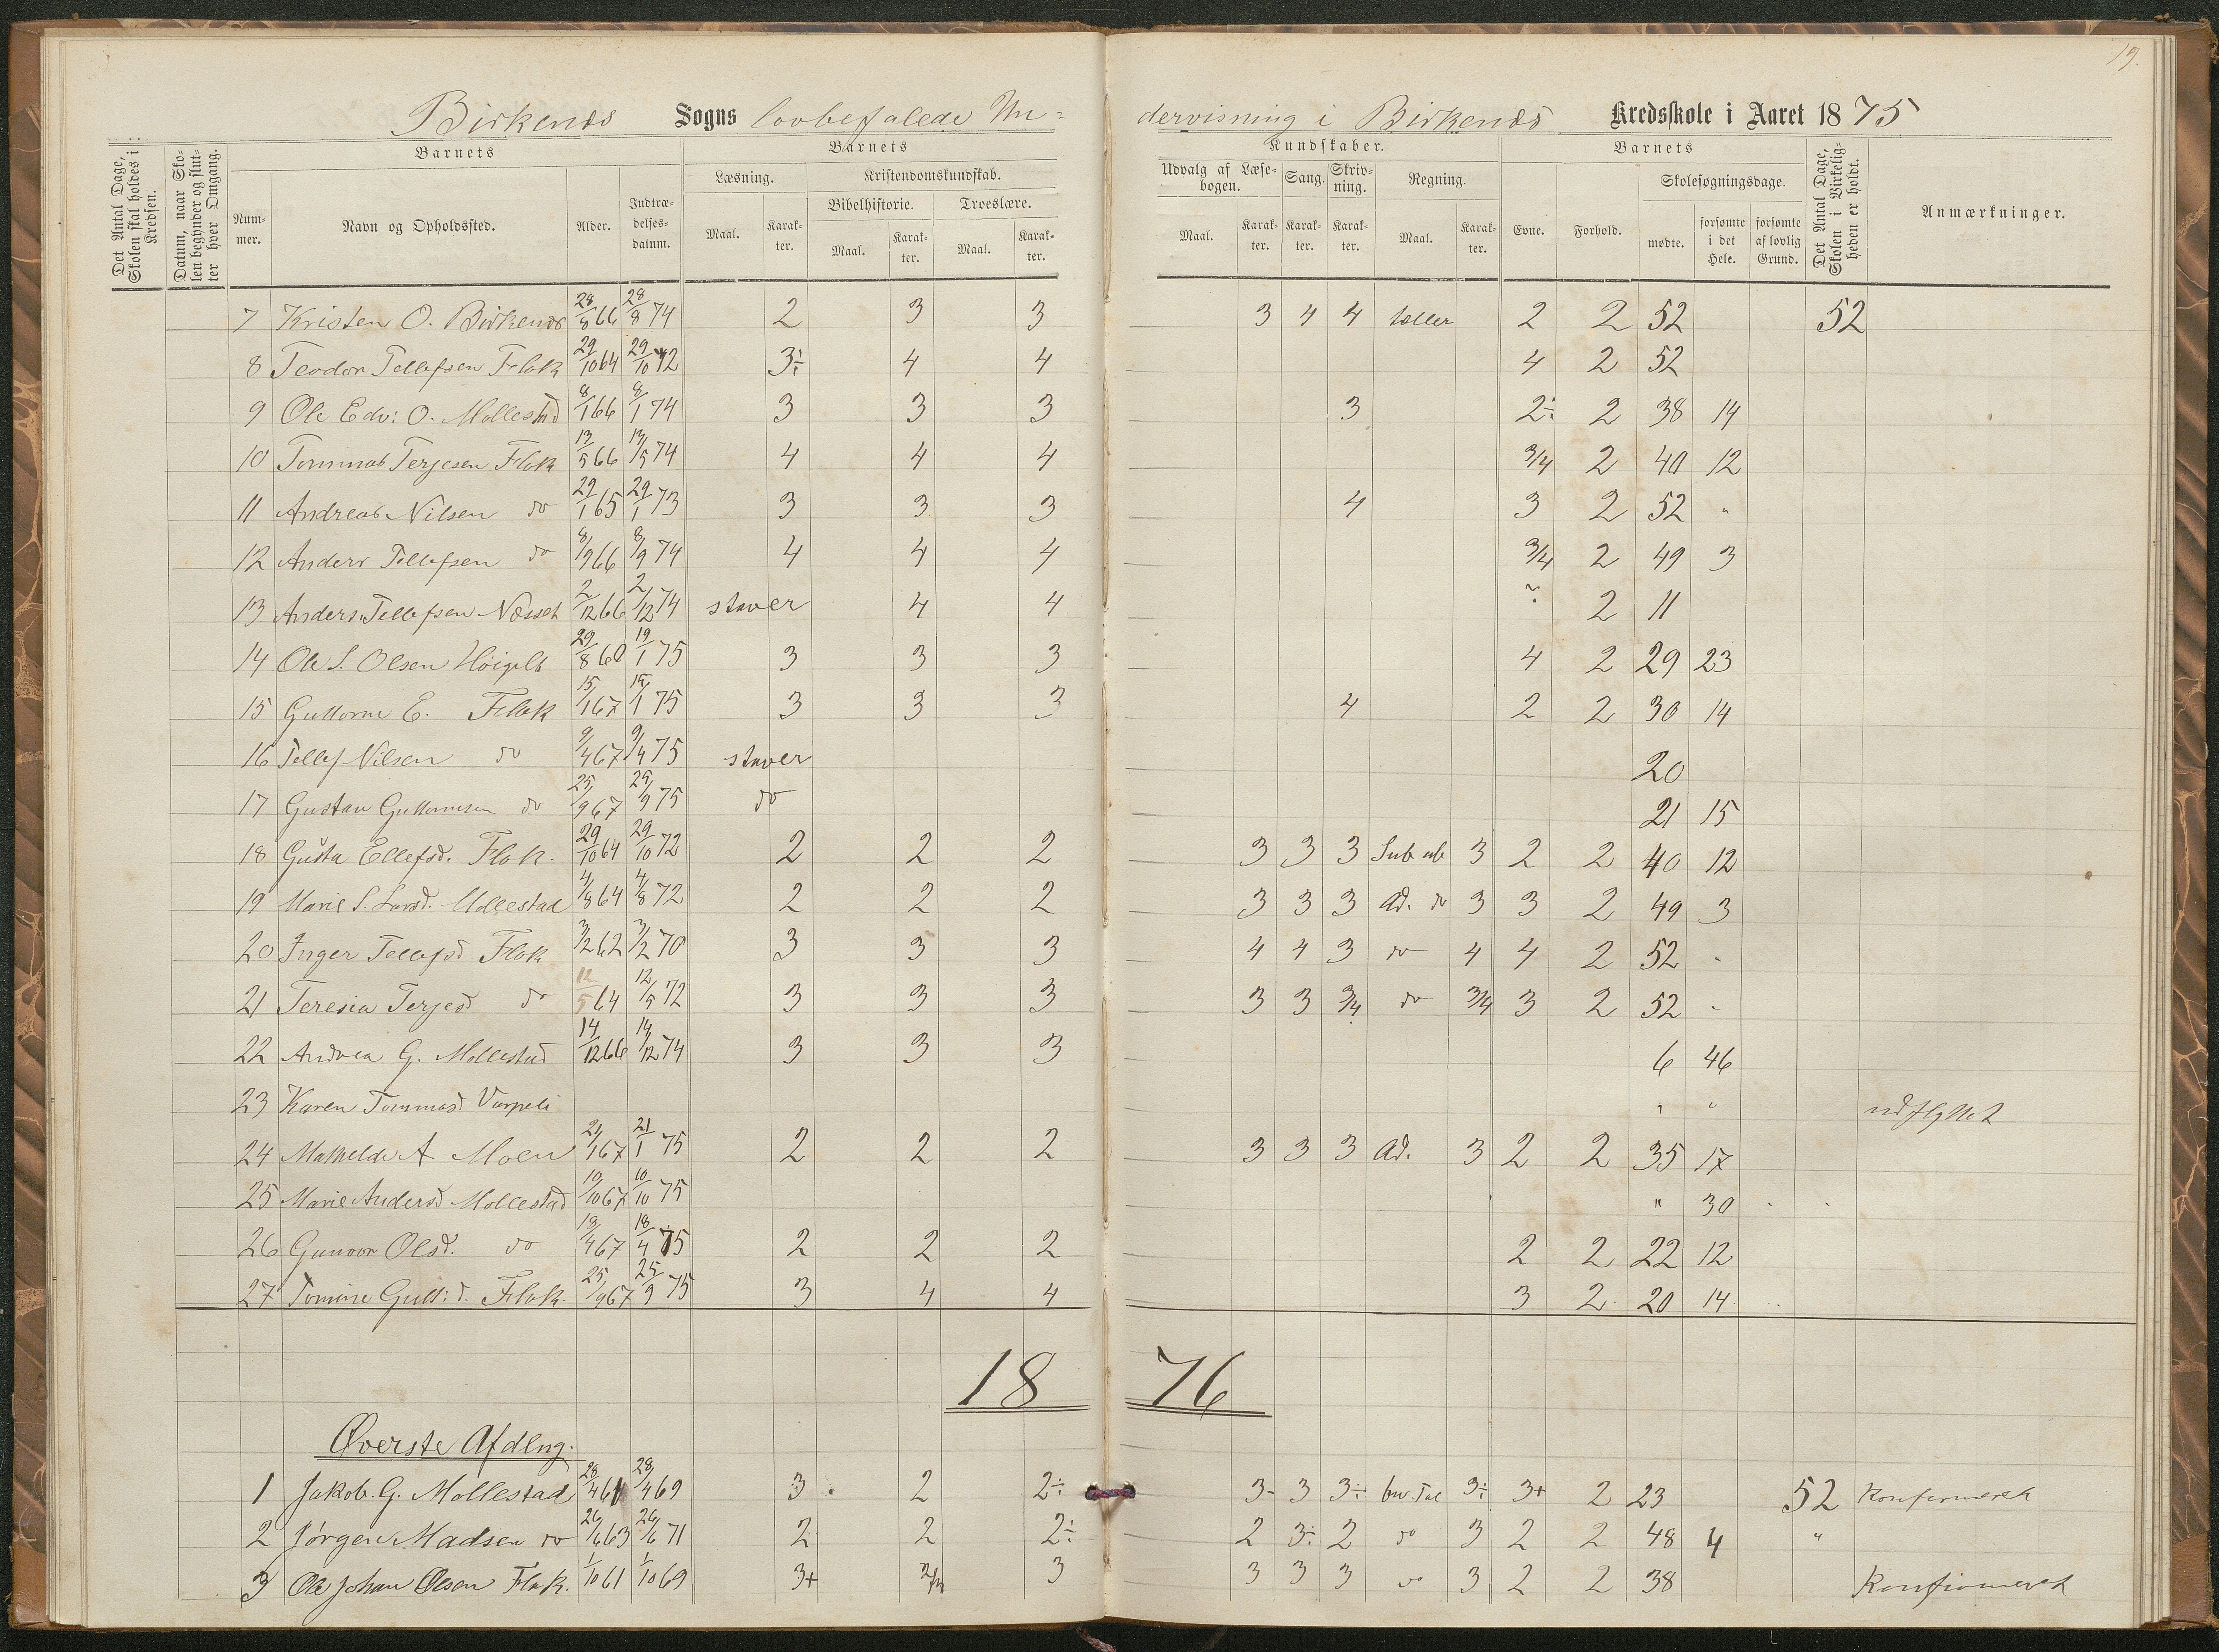 19.
Birkenes Sogns lovbefalede Un= dervisning i Birkenes Kredsskole i Aaret 1875
Det Antal Dage, Skolen skal holdes i Kredsen.
Datum, naar Skolen begynder og slutter hver Omgang.
Barnets
Nummer.
Navn og Opholdssted.
Alder.
Indtrædelsesdatum.
Barnets
Læsning.
Maal.
Karakter.
Kristendomskundskab.
Bibelhistorie.
Maal.
Karakter.
Troeslære.
Maal.
Karakter.
Kundskaber.
Udvalg af Læsebogen.
Maal.
Karakter.
Sang.
Karakter.
Skrivning.
Karakter.
Regning.
Maal.
Karakter.
Barnets
Evne.
Forhold.
Skolesøgningsdage.
mødte.
forsømte i det Hele.
forsømte af lovlig Grund.
Det Antal Dage, Skolen i Virkeligheden er holdt.
Anmærkninger.
7 Kristen O. Birkenes 28/8 66 28/8 74 2 3 3 3 4 4 tæller 2 2 52 52
8 Teodor Tellefsen Flak 29/10 64 29/10 72 3÷ 4 4 4 2 52
9 Ole Edv: O. Mollestad 8/1 66 8/1 74 3 3 3 3 2÷ 2 38 14
10 Tommas Terjesen Flak 13/5 66 13/5 74 4 4 4 3/4 2 40 12
11 Andreas Nilsen do 29/1 65 29/1 73 3 3 3 4 3 2 52 "
12 Anders Tellefsen do 8/9 66 8/9 74 4 4 4 3/4 2 49 3
13 Anders Tellefsen Næset 2/12 66 2/12 74 staver 4 4 ? 2 11
14 Ole S. Olsen 29/8 60 19/1 75 3 3 3 4 2 29 23
15 Guttorm E. Flak 15/1 67 15/1 75 3 3 3 4 2 2 30 14
16 Tellef Nilsen do 9/4 67 9/4 75 staver 20
17 Gustav Guttormsen do 25/9 67 25/9 75 do 21 15
18 Gusta Ellefsd. Flak. 29/10 64 29/10 72 2 2 2 3 3 3 Sub ub 3 2 2 40 12
19 Marie S. Larsd. Mollestad 4/8 64 4/8 72 2 2 2 3 3 3 Ad. do 3 3 2 49 3
20 Inger Tellefsd Flak 3/2 62 3/2 70 3 3 3 4 4 3 do 4 4 2 52 -
21 Teresia Terjesd do 12/5 64 12/5 72 3 3 3 3 3 3/4 do 3/4 3 2 52 -
22 Andrea G. Mollestad 14/12 66 14/12 74 3 3 3 6 46
23 Karen Tommasd Varpeli " " udflyttet
24 Mathelde A. Moen 21/1 67 21/1 75 2 2 2 3 3 3 Ad. 3 2 2 35 17
25 Marie Andersd Mollestad 10/10 67 10/10 75 " 30
26 Gunvor Olsd. do 18/4 67 18/4 75 2 2 2 2 2 22 12
27 Tomine Gutt:d. Flak. 25/9 67 25/9 75 3 4 4 3 2 20 14
18 76
Øverste Afdlng.
1 Jakob. G. Mollestad 28/4 61 28/4 69 3 2 2÷ 3- 3 3÷ bw. Tal 3÷ 3+ 2 23 52 Konfirmeret
2 Jørgen Madsen do 26/6 63 26/6 71 2 2 2÷ 2 3÷ 2 do 3 2 2 48 4 "
3 Ole Johan Olsen Flak. 1/10 61 1/10 69 3+ 2/3 3 3 3 3 do 3 2 2 38 Konfirmeret